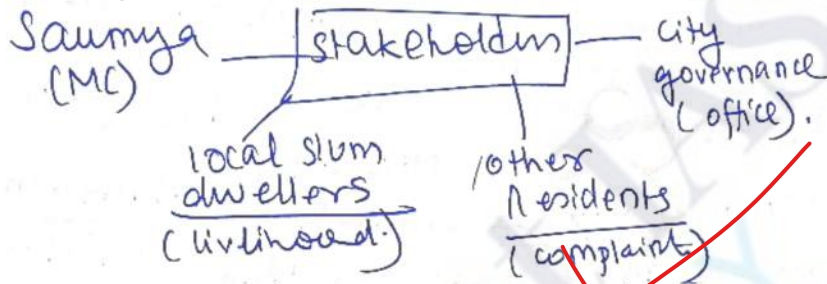 Saumya
(MC)
stakeholders
city
governance
(office).
local slum
dwellers
(livlihood.)
other
Residents
(complaint)
IAS